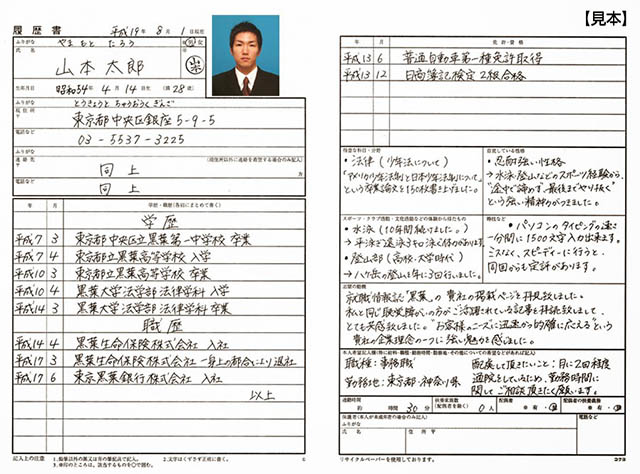 【見本】
履歴書 平成19年 8月 1日現在
ふりがな やまもと たろう
氏名 山本太郎
生年月日 昭和54年 4月 14日生 (満 28歳)
ふりがな とうきょうと ちゅうおうく ぎんざ
現住所
〒
東京都中央区銀座5-9-5
電話など
03-5537-3225
ふりがな
連絡先 (現住所以外に連絡を希望する場合のみ記入)
〒
同上
電話など
同上
年 月 学歴・職歴(各別にまとめて書く)
学歴
平成7 3 東京都中央区立黒葉第一中学校 卒業
平成7 4 東京都立黒葉高等学校 入学
平成10 3 東京都立黒葉高等学校 卒業
平成10 4 黒葉大学法学部法律学科 入学
平成14 3 黒葉大学法学部法律学科 卒業
職歴
平成14 4 黒葉生命保険株式会社 入社
平成17 3 黒葉生命保険株式会社 一身上の都合により退社
平成17 6 東京黒葉銀行株式会社 入社
以上
記入上の注意 1.鉛筆以外の黒又は青の筆記具で記入。 2.文字はくずさず正確に書く。
3.※印のところは、該当するものを○で囲む。
年 月 免許・資格
平成13 6 普通自動車第一種免許取得
平成13 12 日商簿記検定2級合格
得意な科目・分野
・法律(少年法について)
「アメリカ少年法制と日本少年法制について」
という卒業論文を150枚書き上げました。
自覚している性格
・忍耐強い性格
→水泳、登山などのスポーツ経験から、
"途中で諦めず、最後までやり抜く"
という強い精神力がつきました。
スポーツ・クラブ活動・文化活動などの体験から得たもの
・水泳(10年間続けました。)
→平泳ぎで遠泳3キロ泳ぐ体力があります。
・登山部(高校・大学時代)
→八ケ岳の登山を1年に3回行いました。
特技など
・パソコンのタイピングの速さ
一分間に1500文字入力出来ます。
ミスなく、スピーディーに行うと、
同回からも定評があります。
志望の動機
就職情報誌「黒葉」の貴社の掲載ページを拝見致しました。
私と同じ聴覚障がいの方がご活躍されている記事を拝読致しまして、
とても共感致しました。"お客様のニーズに迅速かつ的確に応える"という
貴社の企業理念の一つに強い魅力を感じました。
本人希望記入欄(特に給料・職種・勤務時間・勤務地・その他についての希望などがあれば記入)
職種:事務職
勤務地:東京都・神奈川県
配慮して頂きたいこと:月に2回程度
通院をしているため、勤務時間に
関してご相談頂きたく願います。
通勤時間
約 時間 30分
扶養家族数
(配偶者を除く) 0人
配偶者
※ 有・無
配偶者の扶養義務
※ 有・無
保護者(本人が未成年者の場合のみ記入)
ふりがな
氏名 住所 〒
電話
リサイクルペーパーを使用しております。